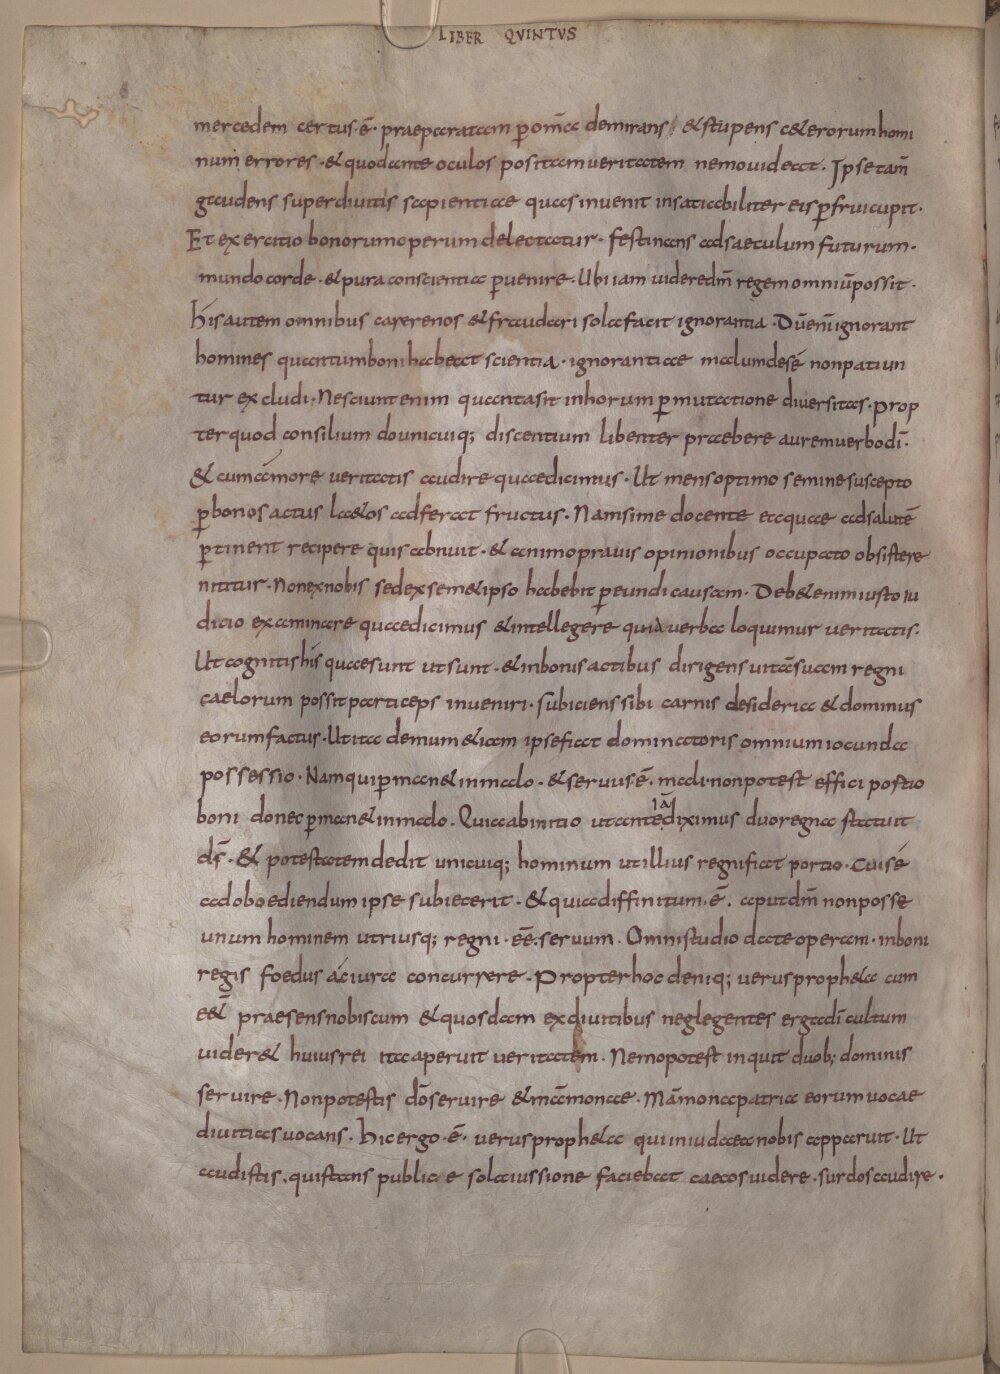 LIBER QVINTVS
mercedem certus·ē· praeparatam p̄ om̄a demirans &stupens c&erorum homi
num errores·&quod ante oculos positam ueritatem nemo uideat· Ipse tam̄
gaudens super diuitis sapientiae quas inuenit insatiabiliter eis ꝑfrui cupit·
Et exercitio bonorum operum delectatur· festinans ad saeculum futurum·
mundo corde·&pura conscientia ꝑuenire· Ubi iam uidere dm̄ regem omniū possit·
his autem omnibus carere nos &fraudari sola facit ignorantia· Dū enī ignorant
homines quantum boni habeat scientia· ignorantiae malum de sé non patiun
tur excludi· Nesciunt enim quanta sit in horum ꝑmutatione diuersitas· prop
ter quod consilium do unicuiq; discentium libenter praebere aurem uerbo dī·
&cum amore ueritatis audire quae dicimus· Ut mens optimo semine suscepto
ꝑ bonos actus la&os adferat fructus· Nam si me docente ea quae ad salutē
ꝑtinent recipere quis abnuit·&animo prauis opinionibus occupato obsistere
nititur· Non ex nobis sed ex sem&ipso habebit ꝑeundi causam· Deb&enim iusto iu
dicio examinare quae dicimus &intellegere quia uerba loquimur ueritatis·
Ut cognitis his quae sunt ut sunt·&in bonis actibus dirigens uitā suam regni
caelorum possit particeps inueniri· subiciens sibi carnis desideria &dominus
eorum factus· Ut ita demum &iam ipse fiat dominatoris omnium iocunda
possessio· Nam qui ꝑman&in malo·&seruus ē· mali· non potest effici portio
boni donec ꝑman&in malo· Quia ab initio ut ante iā diximus duo regna statuit
dś·&potestatem dedit unicuiq; hominum ut illius regni fiat portio· cui sé
ad oboediendum ipse subiecerit·&quia diffinitum·ē· aput dm̄ non posse
unum hominem utriusq; regni·eē·seruum· Omni studio date operam· in boni
regis foedus ac iura concurrere· Propter hoc deniq; uerus proph&a cum
e&̄ praesens nobiscum &quosdam ex diuitibus neglegentes erga dī cultum
uider& huius rei ita aperuit ueritatem· Nemo potest inquit duob; dominis
seruire· Non potestis dō seruire &māmonae· Māmona patria eorum uocae
diuitias uocans· hic ergo·ē· uerus proph&a qui in iudaea nobis apparuit· Ut
audistis· qui stans publice sola iussione faciebat caecos uidere· surdos audire·